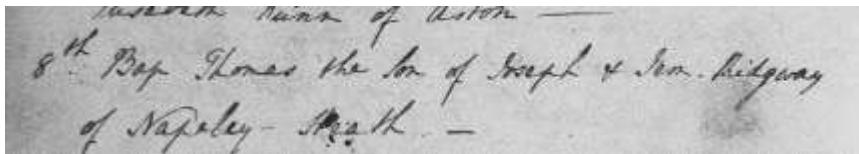 of Aston —
8th Bap Thomas the Son of Joseph & Jem. Ridgway
of Napeley - Heath —